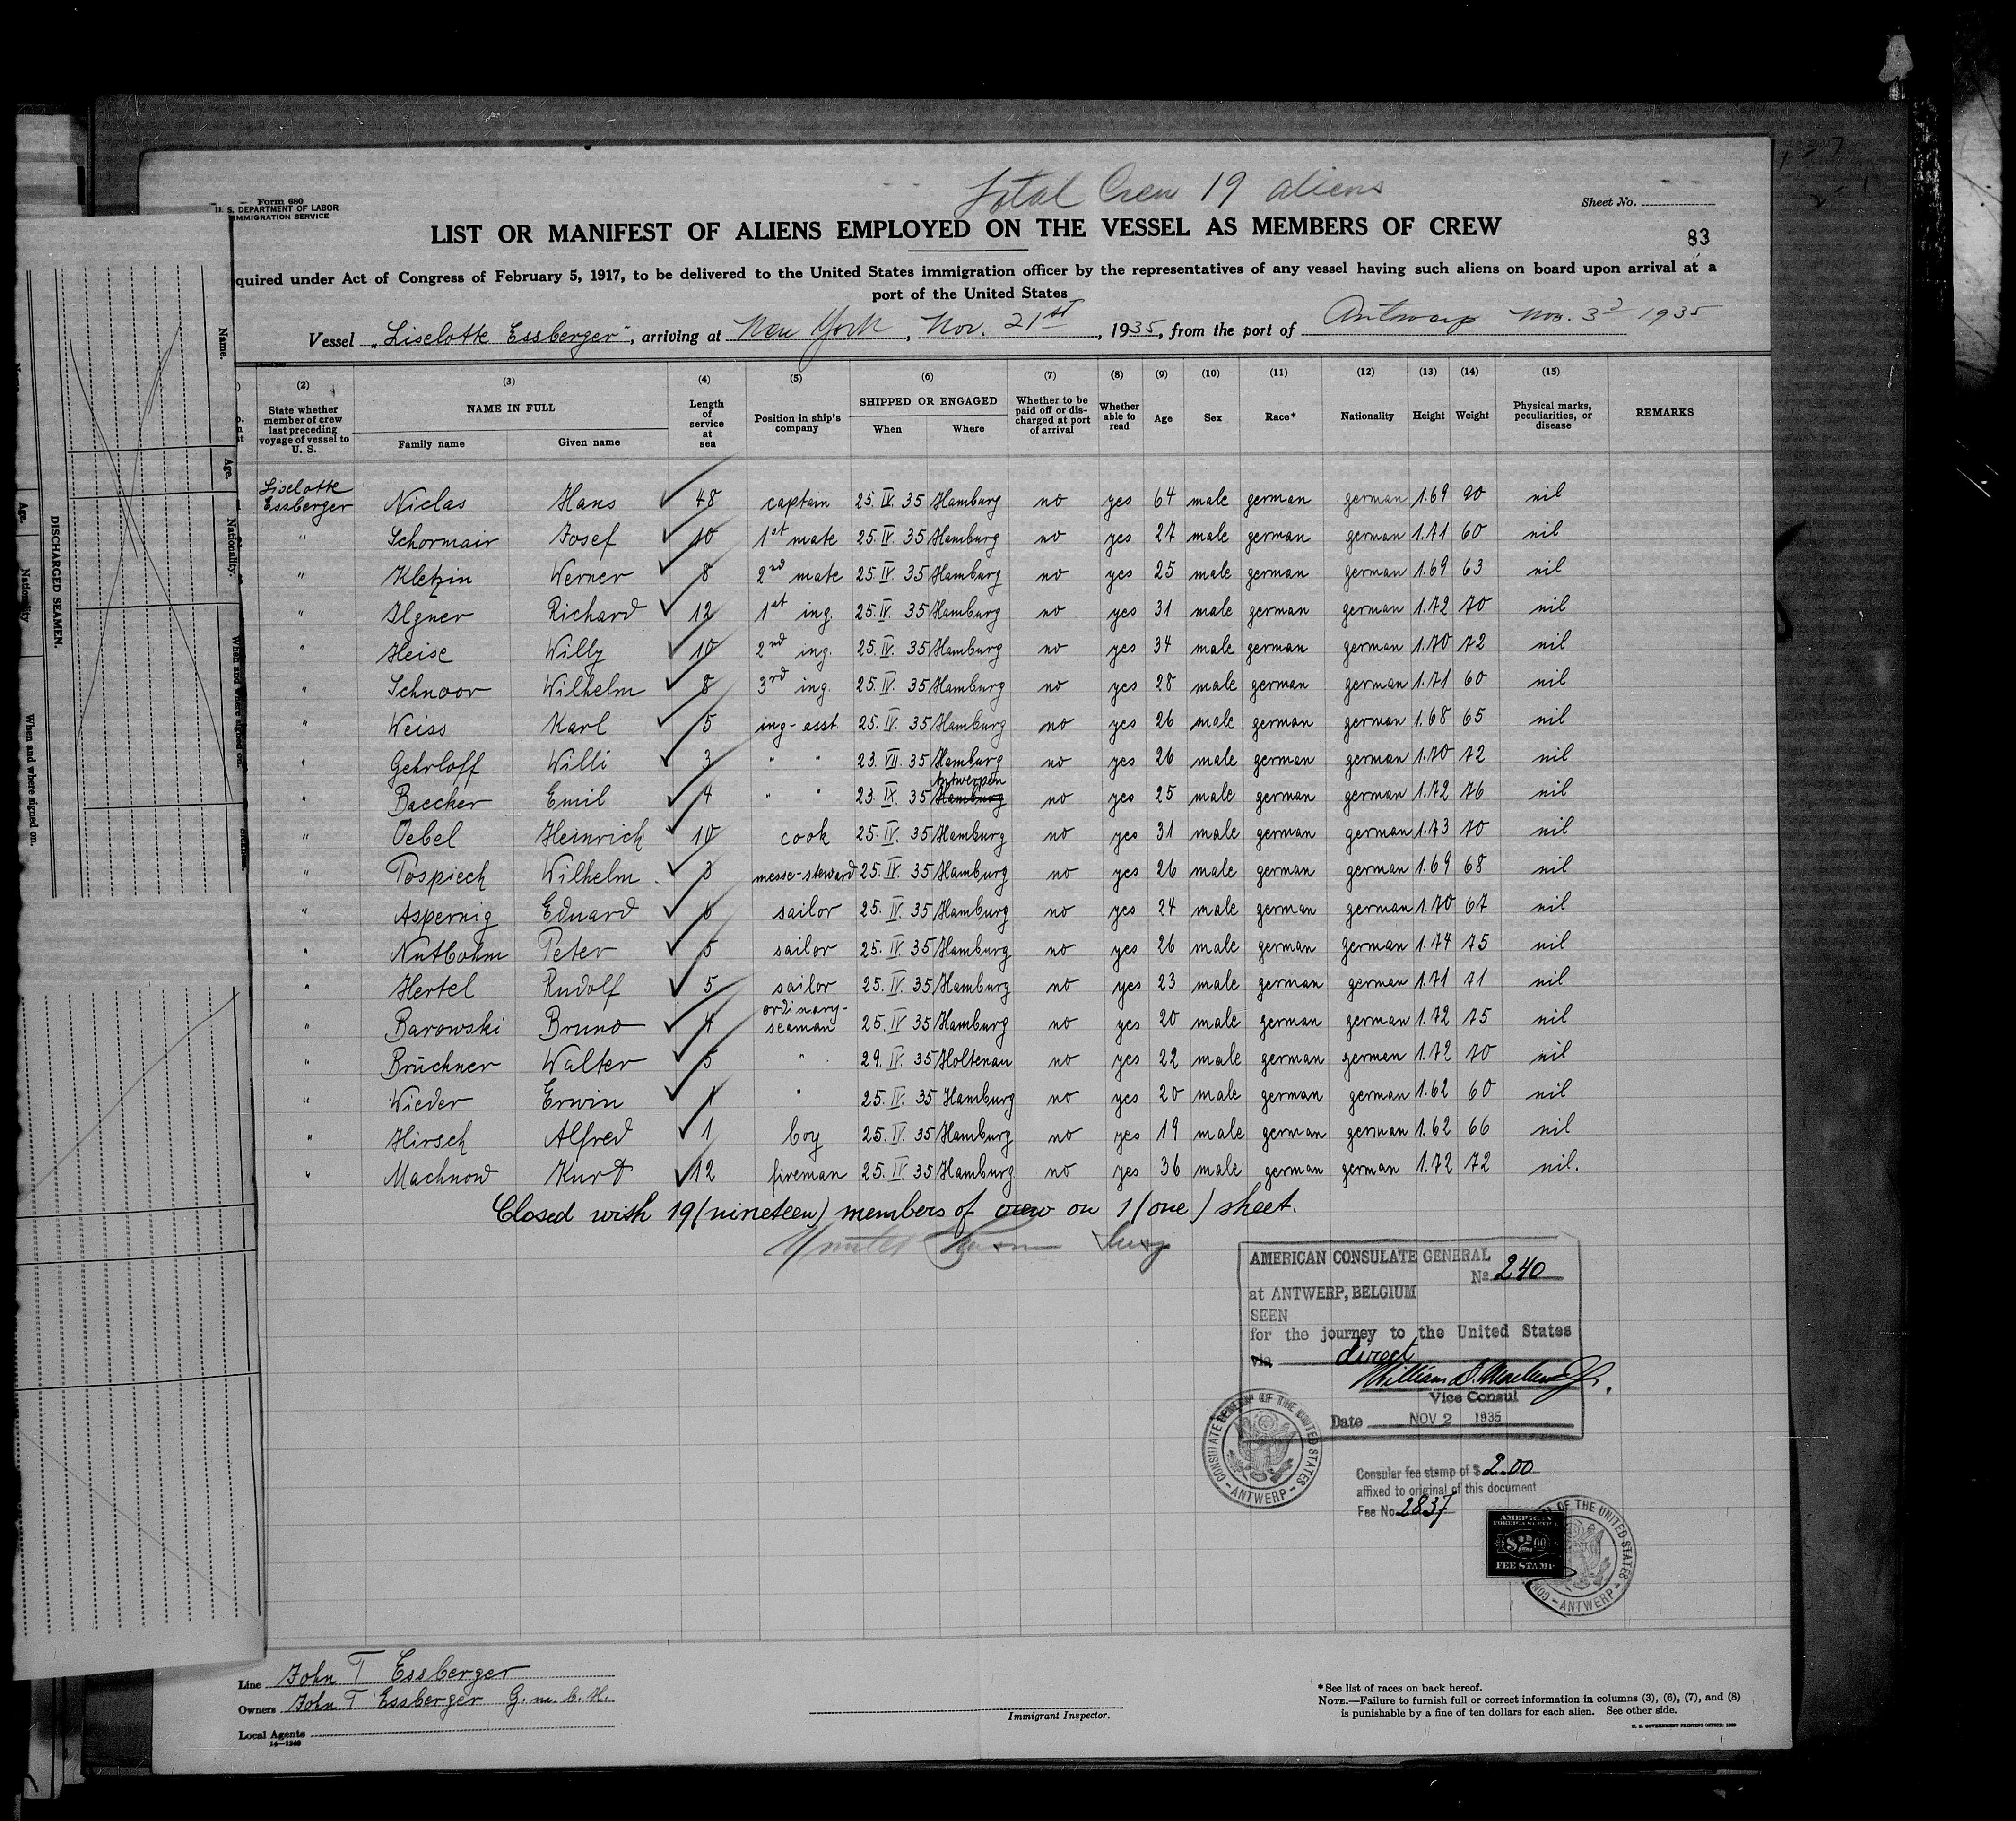 Total Crew 19 aliens
Form 680
U. S. DEPARTMENT OF LABOR
IMMIGRATION SERVICE
Sheet No.
LIST OR MANIFEST OF ALIENS EMPLOYED ON THE VESSEL AS MEMBERS OF CREW
83
quired under Act of Congress of February 5, 1917, to be delivered to the United States immigration officer by the representatives of any vessel having such aliens on board upon arrival at a
port of the United States
Vessel „Liselotte Essberger“, arriving at New York, Nov. 21st, 1935, from the port of Antwerp Nov. 3d 1935
(2) (3) (4) (5) (6) (7) (8) (9) (10) (11) (12) (13) (14) (15)
State whether member of crew last preceding voyage of vessel to U. S. NAME IN FULL Family name Given name Length of service at sea Position in ship's company SHIPPED OR ENGAGED When Where Whether to be paid off or discharged at port of arrival Whether able to read Age Sex Race* Nationality Height Weight Physical marks, peculiarities, or disease REMARKS
Liselotte Essberger Niclas Hans 48 captain 25. IV. 35 Hamburg no yes 64 male german german 1.69 90 nil
" Schormair Josef 10 1st mate 25. IV. 35 Hamburg no yes 27 male german german 1.71 60 nil
" Kletzin Werner 8 2nd mate 25. IV. 35 Hamburg no yes 25 male german german 1.69 63 nil
" Ilgner Richard 12 1st ing. 25. IV. 35 Hamburg no yes 31 male german german 1.72 70 nil
" Heise Willy 10 2nd ing. 25. IV. 35 Hamburg no yes 34 male german german 1.70 72 nil
" Schnoor Wilhelm 8 3rd ing. 25. IV. 35 Hamburg no yes 28 male german german 1.71 60 nil
" Weiss Karl 5 ing-asst 25. IV. 35 Hamburg no yes 26 male german german 1.68 65 nil
" Gehrloff Willi 3 " " 23. VII. 35 Hamburg no yes 26 male german german 1.70 72 nil
" Baecker Emil 4 " " 23. IX. 35 Hamburg Antwerpen no yes 25 male german german 1.72 76 nil
" Oebel Heinrich 10 cook 25. IV. 35 Hamburg no yes 31 male german german 1.73 70 nil
" Pospiech Wilhelm 3 messe-steward 25. IV. 35 Hamburg no yes 26 male german german 1.69 68 nil
" Aspernig Eduard 6 sailor 25. IV. 35 Hamburg no yes 24 male german german 1.70 67 nil
" Nutbohm Peter 5 sailor 25. IV. 35 Hamburg no yes 26 male german german 1.74 75 nil
" Hertel Rudolf 5 sailor 25. IV. 35 Hamburg no yes 23 male german german 1.71 71 nil
" Barowski Bruno 4 ordinary-seaman 25. IV 35 Hamburg no yes 20 male german german 1.72 75 nil
" Brückner Walter 5 " 29. IV. 35 Holtenau no yes 22 male german german 1.72 70 nil
" Wieder Erwin 1 " 25. IV. 35 Hamburg no yes 20 male german german 1.62 60 nil
" Hirsch Alfred 1 boy 25. IV. 35 Hamburg no yes 19 male german german 1.62 66 nil
" Machnow Kurt 12 fireman 25. IV. 35 Hamburg no yes 36 male german german 1.72 72 nil.
Closed with 19 (nineteen) members of crew on 1 (one) sheet.
AMERICAN CONSULATE GENERAL
No. 240
at ANTWERP, BELGIUM
SEEN
for the journey to the United States
via direct
Vice Consul
Date NOV 2 1935
CONSULATE GENERAL OF THE UNITED STATES - ANTWERP -
Consular fee stamp of $ 2.00
affixed to original of this document
Fee No. 2837
AMERICAN
FOREIGN SERVICE
$2.00
FEE STAMP
OF THE UNITED STATES - ANTWERP -
Line John T Essberger
Owners John T Essberger G.m.b.H.
Local Agents
14—1240
Immigrant Inspector.
*See list of races on back hereof.
NOTE.—Failure to furnish full or correct information in columns (3), (6), (7), and (8)
is punishable by a fine of ten dollars for each alien. See other side.
U. S. GOVERNMENT PRINTING OFFICE:
Name.
Age.
Nationality.
When and where signed on.
DISCHARGED SEAMEN.
Age.
Nationality
When and where signed on.